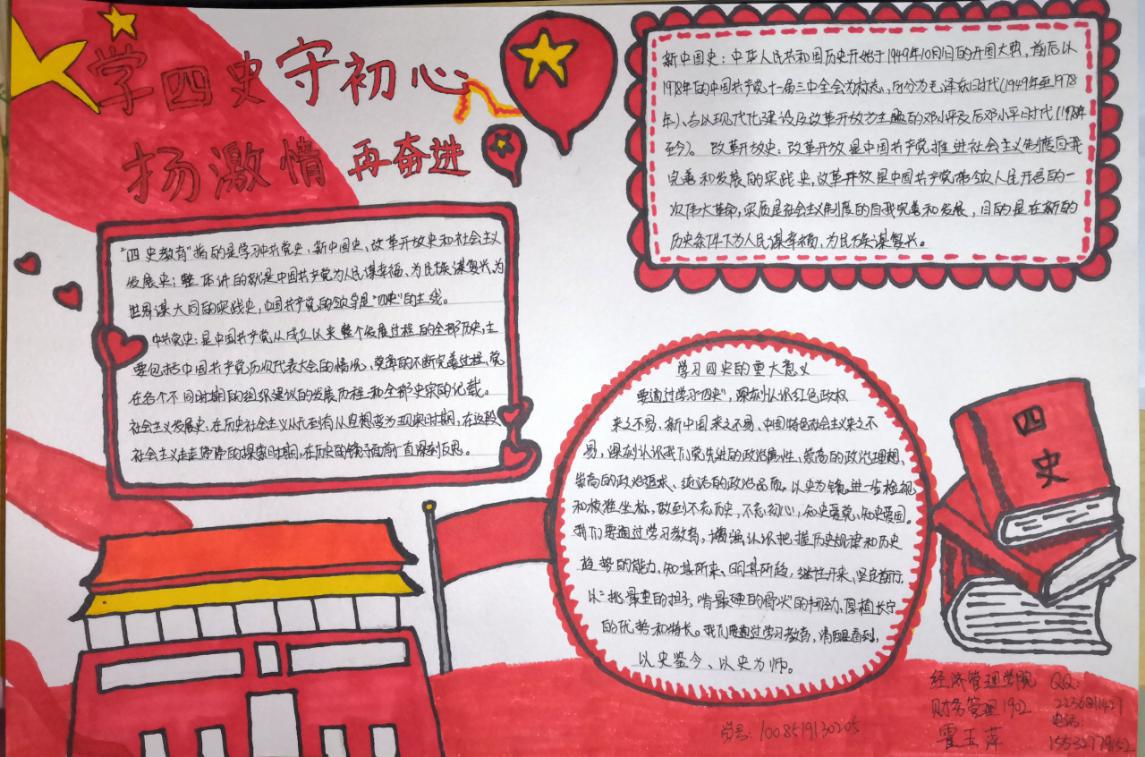 学四史守初心
扬激情再奋进
"四史教育"指的是学习中共党史、新中国史、改革开放史和社会主义
发展史；整体讲的就是中国共产党为人民谋幸福、为民族谋复兴、为
世界谋大同的实践史，中国共产党的领导是"四史"的主线。
中共党史：是中国共产党从成立以来整个发展过程的全部历史，主
要包括中国共产党历次代表大会的情况、党章的不断完善过程、党
在各个不同时期的组织建设的发展历程和全部史实的记载。
社会主义发展史，在历史社会主义从无到有从思想变为现实时期，在这段
社会主义走走停停的探索时期，在历史的镜子面前一直深刻反思。
新中国史：中华人民共和国历史开始于1949年10月1日的开国大典，前后以
1978年的中国共产党十一届三中全会为标志，可分为毛泽东时代(1949年至1978
年)、与以现代化建设及改革开放为主题的邓小平及后邓小平时代(1978年
至今)。改革开放史：改革开放是中国共产党推进社会主义制度自我
完善和发展的实践史，改革开放是中国共产党带领人民开启的一
次伟大革命，实质是社会主义制度的自我完善和发展，目的是在新的
历史条件下为人民谋幸福，为民族谋复兴。
学习四史的重大意义
要通过学习"四史"，深刻认识红色政权
来之不易、新中国来之不易、中国特色社会主义来之不
易，深刻认识我们党先进的政治属性、崇高的政治理想、
崇高的政治追求、纯洁的政治品质。以史为镜，进一步检视
和校准坐标，做到不忘历史，不忘初心，知史爱党，知史爱国。
我们要通过学习教育，增强认识把握历史规律和历史
趋势的能力，知其所来、明其所段，继往开来、坚定前行，
以"挑最重的担子，啃最硬的骨头"的行动、厚植长守
的优势和特长。我们要通过学习教育，清醒看到，
以史鉴今、以史为师。
四
史
经济管理学院 QQ:
财务管理1902 2236811427
霍玉萍 电话:
学号: 1008519130205